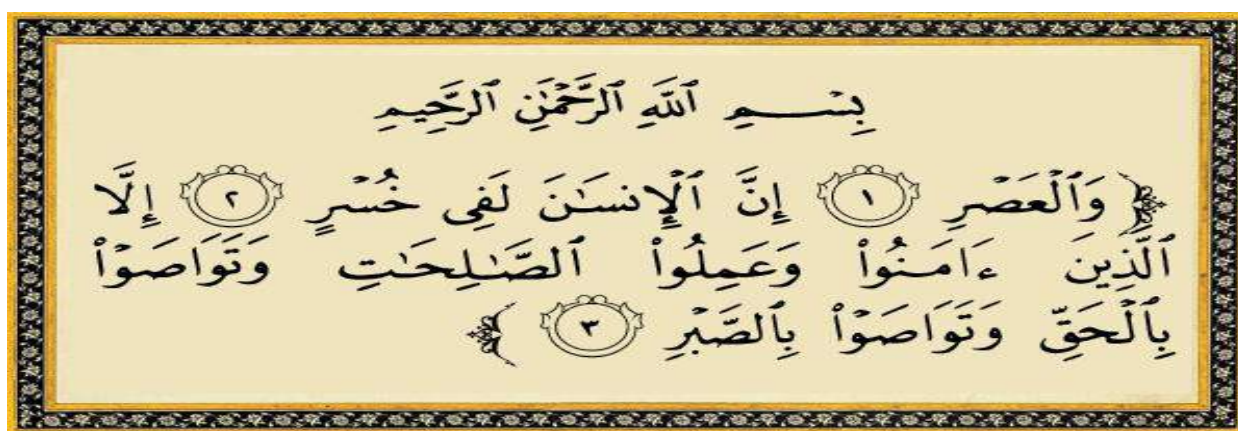 بِسْمِ ٱللَّهِ ٱلرَّحْمَٰنِ ٱلرَّحِيمِ
﴿ وَٱلْعَصْرِ ١ إِنَّ ٱلْإِنسَٰنَ لَفِى خُسْرٍ ٢ إِلَّا
ٱلَّذِينَ ءَامَنُوا۟ وَعَمِلُوا۟ ٱلصَّٰلِحَٰتِ وَتَوَاصَوْا۟
بِٱلْحَقِّ وَتَوَاصَوْا۟ بِٱلصَّبْرِ ٣ ﴾